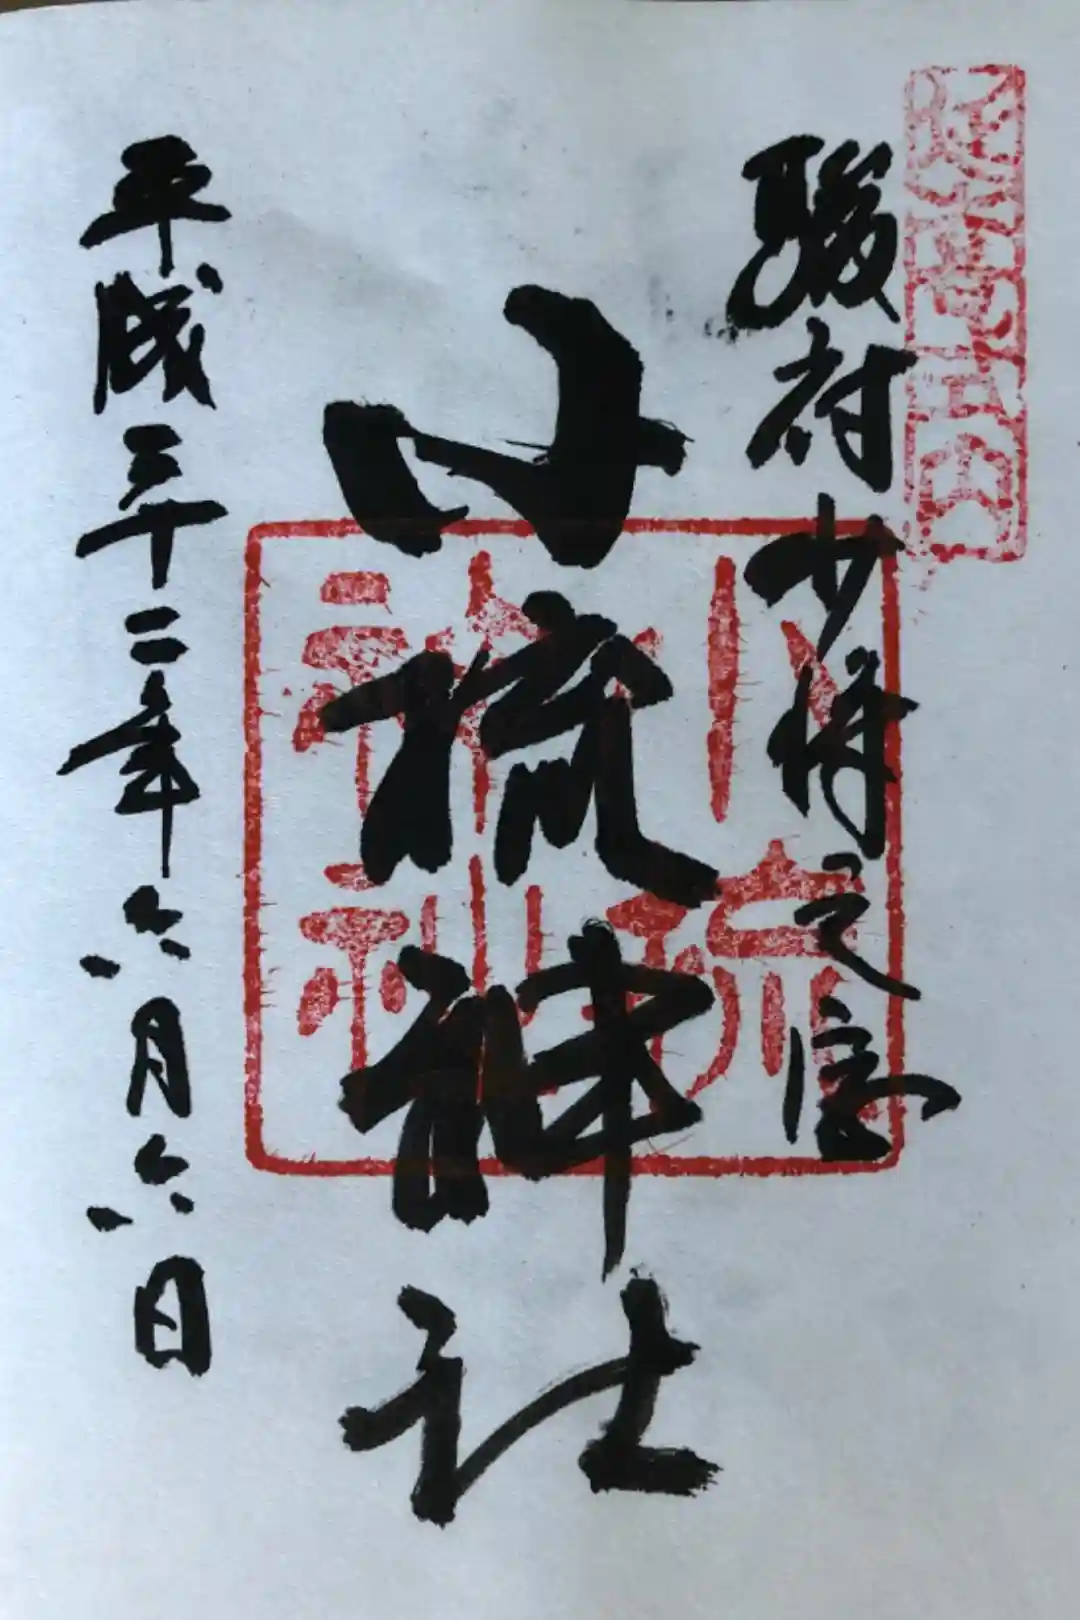 延喜式内
駿府少将之宮
小梳神社
小梳神社
平成三十二年六月六日